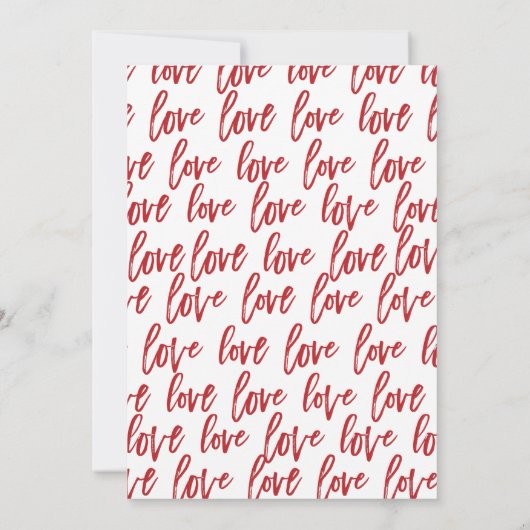 love love love love
love love love love
love love love love
love love love love love
love love love love love
love love love love
love love love love
love love love love
love love love love
love love love love